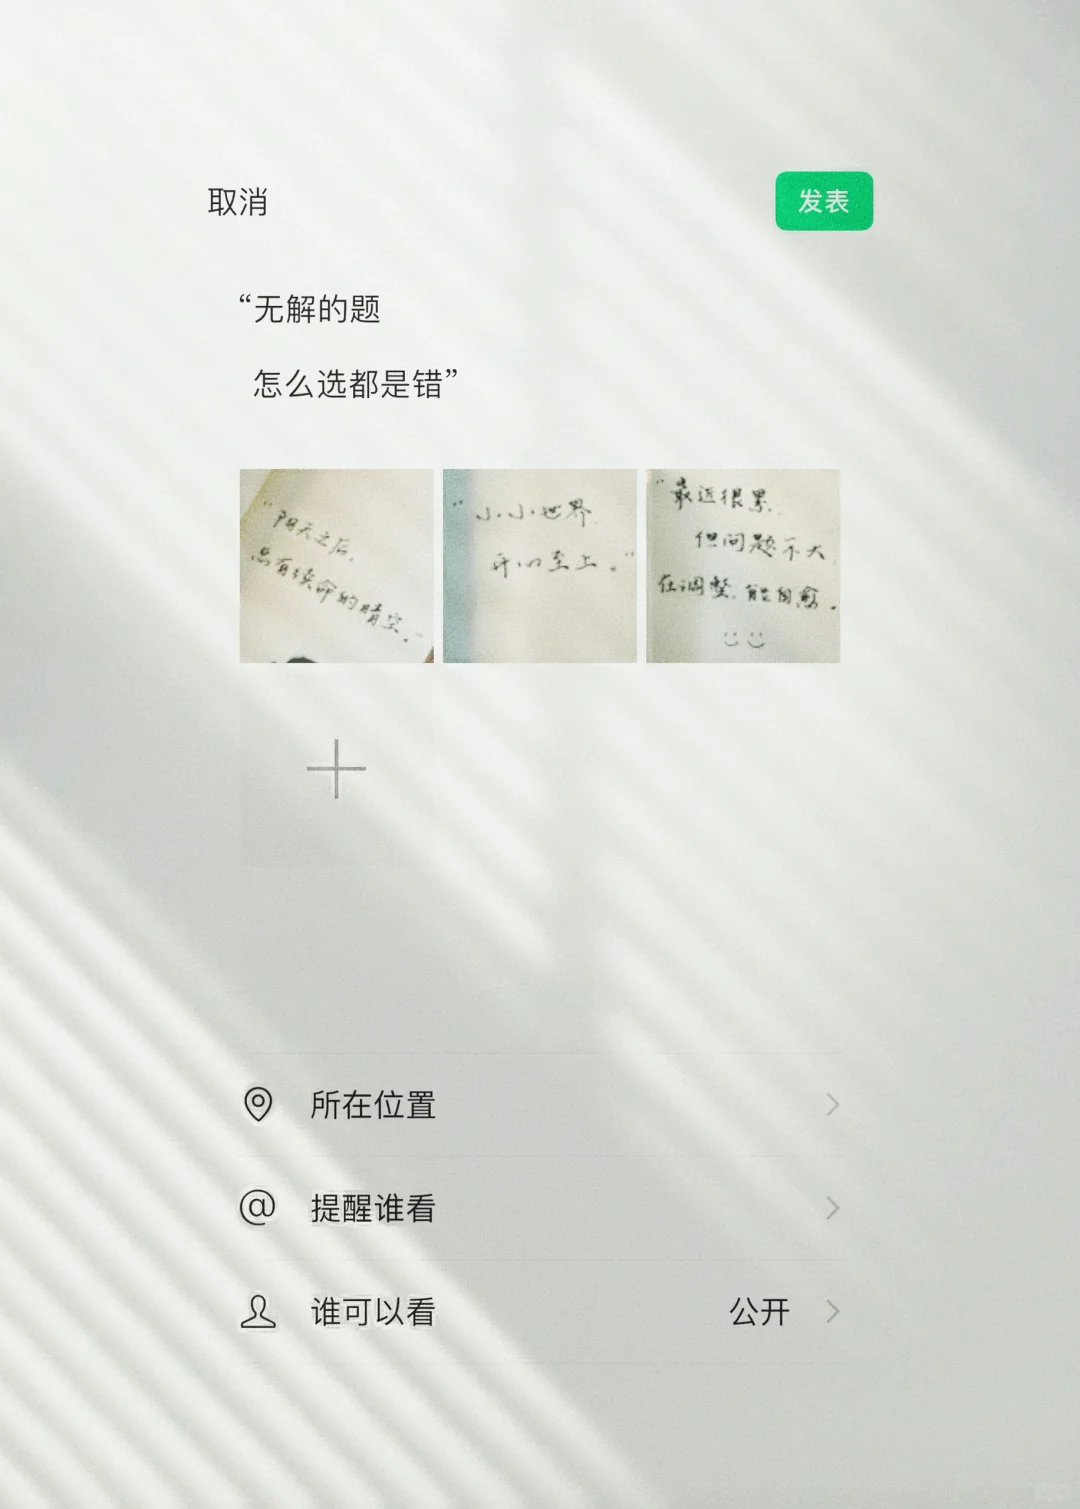 取消
发表
“无解的题
怎么选都是错”
“阴天之后,
总有续命的晴空。”
“小小世界
开心至上。”
“最近很累,
但问题不大
在调整,能自愈。
所在位置
@ 提醒谁看
谁可以看
公开